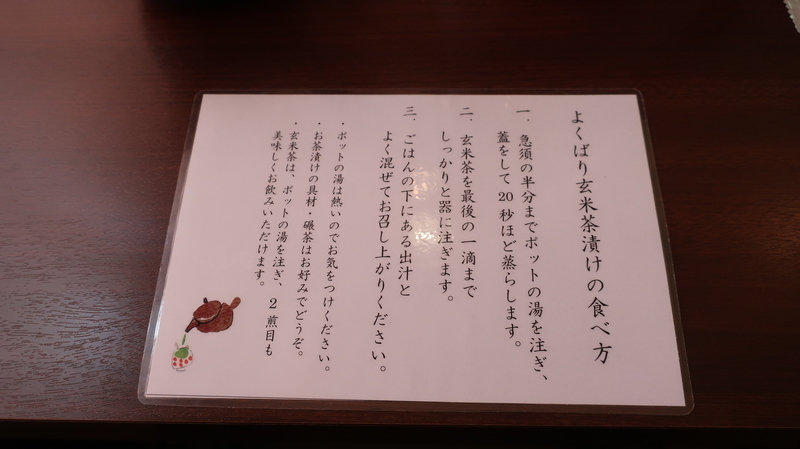 よくばり玄米茶漬けの食べ方
一．急須の半分までポットの湯を注ぎ、
蓋をして20秒ほど蒸らします。
二．玄米茶を最後の一滴まで
しっかりと器に注ぎます。
三．ごはんの下にある出汁と
よく混ぜてお召し上がりください。
・ポットの湯は熱いのでお気をつけください。
・お茶漬けの具材・碾茶はお好みでどうぞ。
・玄米茶は、ポットの湯を注ぎ、2煎目も
美味しくお飲みいただけます。